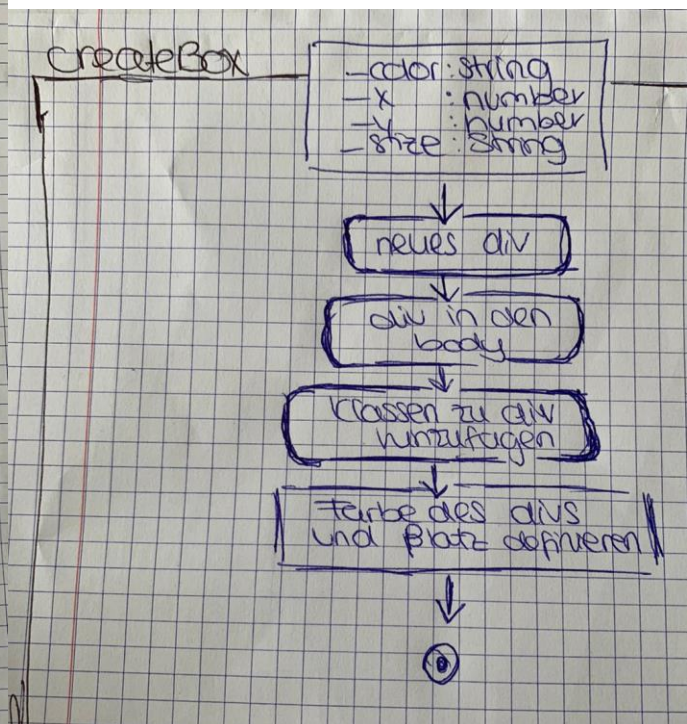 createBox
-color: string
-x : number
-y : number
-size : string
neues div
div in den
body
Klassen zu div
hinzufügen
Farbe des divs
und Platz definieren